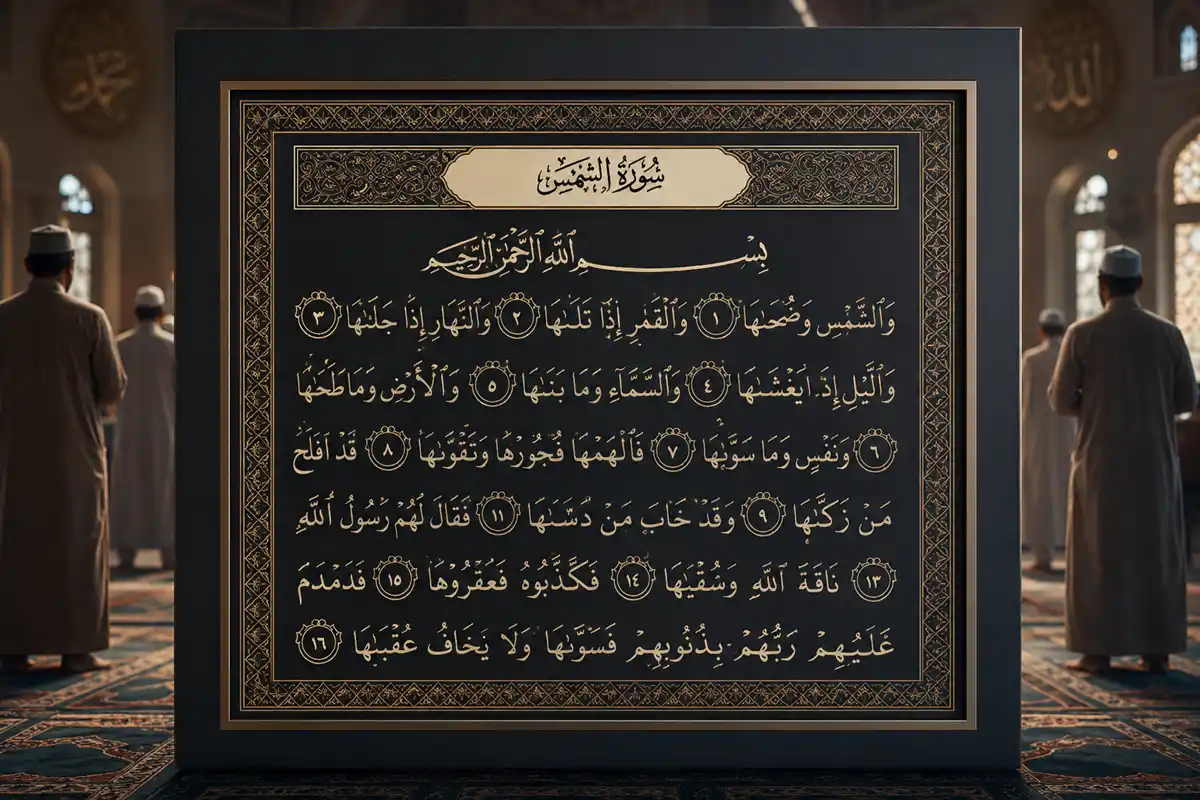 سُورَةُ الشَّمْسِ
بِسْمِ ٱللَّهِ ٱلرَّحْمَٰنِ ٱلرَّحِيمِ
وَٱلشَّمْسِ وَضُحَىٰهَا ١ وَٱلْقَمَرِ إِذَا تَلَىٰهَا ٢ وَٱلنَّهَارِ إِذَا جَلَىٰهَا ٣
وَٱلَّيْلِ إِذَ ايَغْشَىٰهَا ٤ وَٱلسَّمَآءِ وَمَا بَنَىٰهَا ٥ وَٱلْأَرْضِ وَمَا طَحَىٰهَا
٦ وَنَفْسٍ وَمَا سَوَّىٰهَا ٧ فَأَلْهَمْهَا فُجُورَهَا وَتَقْوَىٰهَا ٨ قَدْ أَفْلَحَ
مَنْ زَكَّىٰهَا ٩ وَقَدْ خَابَ مَنْ دَسَّىٰهَا ١١ فَقَالَ لَهُمْ رَسُولُ ٱللَّهِ
١٣ نَاقَةَ ٱللَّهِ وَسُقْيَٰهَا ١٤ فَكَذَّبُوهُ فَعَقَرُوهَا ١٥ فَدَمْدَمَ
عَلَيْهِمْ رَبُّهُمْ بِذُنُوبِهِمْ فَسَوَّىٰهَا وَلَا يَخَافُ عُقْبَىٰهَا ١٦
محمد
الله